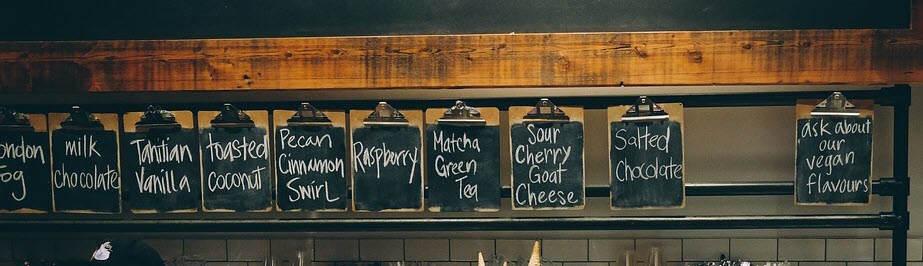 ondon
Fog
milk
chocolate
Tahitian
Vanilla
Toasted
coconut
Pecan
Cinnamon
Swirl
Raspburry
Matcha
Green
Tea
Sour
Cherry
Goat
Cheese
Salted
Chocolate
ask about
our
vegan
flavours